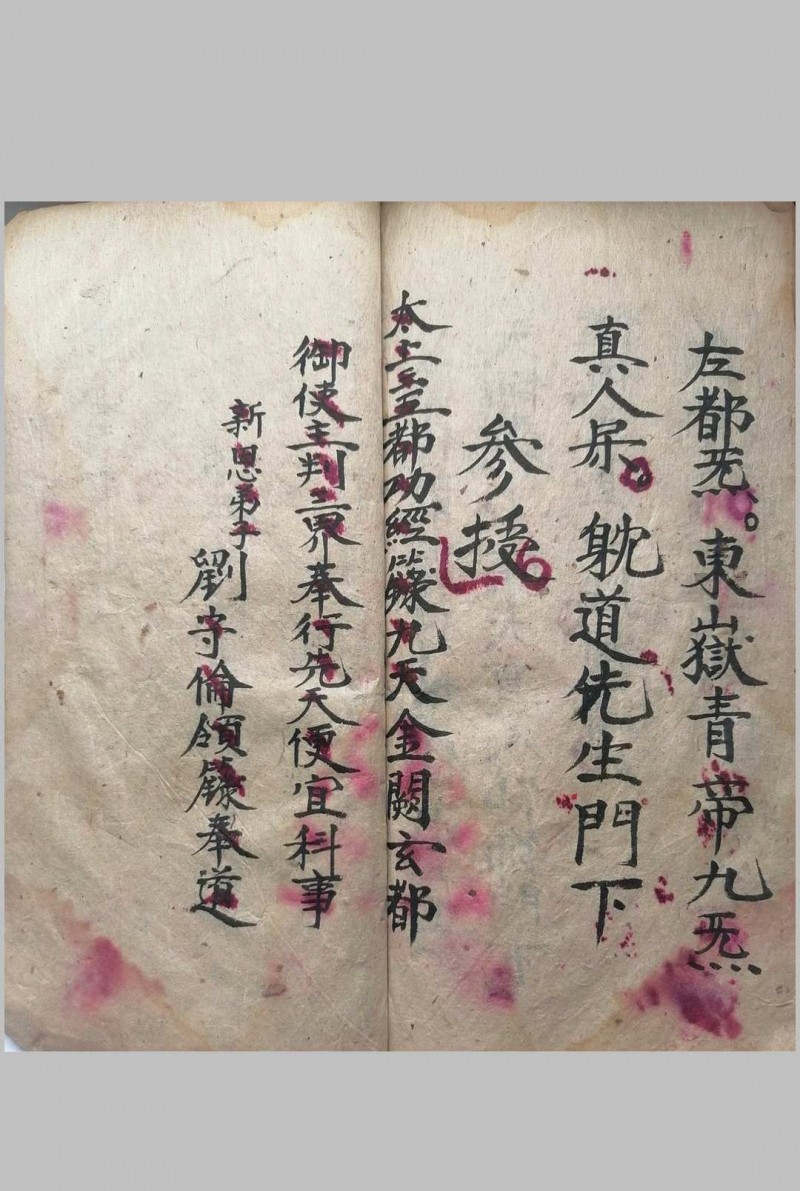 左都炁。東嶽青帝九炁
真人斘。躭道先生門下
參授
太上三五都功經籙九天金闕玄都
御使主判三界奉行先天便宜科事
新恩弟子劉守倫領籙奉道